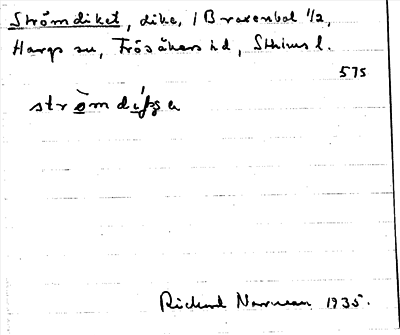 Strömdiket, dike, i Braxenbol 1/2,
Hargs sn, Frösåkers hd, Sthlms l.
575
strömdiḳe
Richard Norrman 1935.